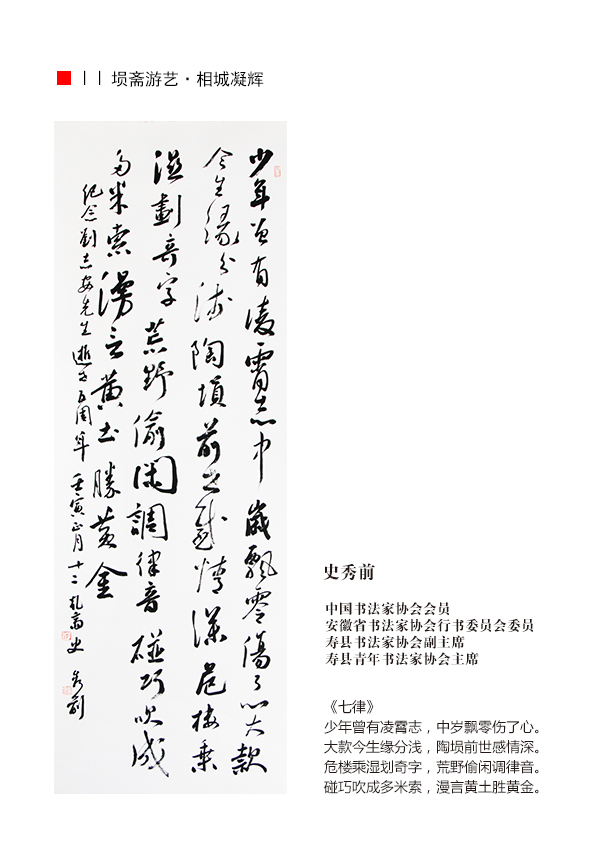 11 埙斋游艺·相城凝辉
少年曾有凌霄志中歲飄零傷了心大款
今生缘分浅陶塤前世感情深危楼乘
溼劃奇字荒野偷閑調律音碰巧吹成
多米索漫言黄土勝黄金
纪念劉志安先生逝世五周年 壬寅正月十二 史秀前
史秀前
中国书法家协会会员
安徽省书法家协会行书委员会委员
寿县书法家协会副主席
寿县青年书法家协会主席
《七律》
少年曾有凌霄志，中岁飘零伤了心。
大款今生缘分浅，陶埙前世感情深。
危楼乘湿划奇字，荒野偷闲调律音。
碰巧吹成多米索，漫言黄土胜黄金。